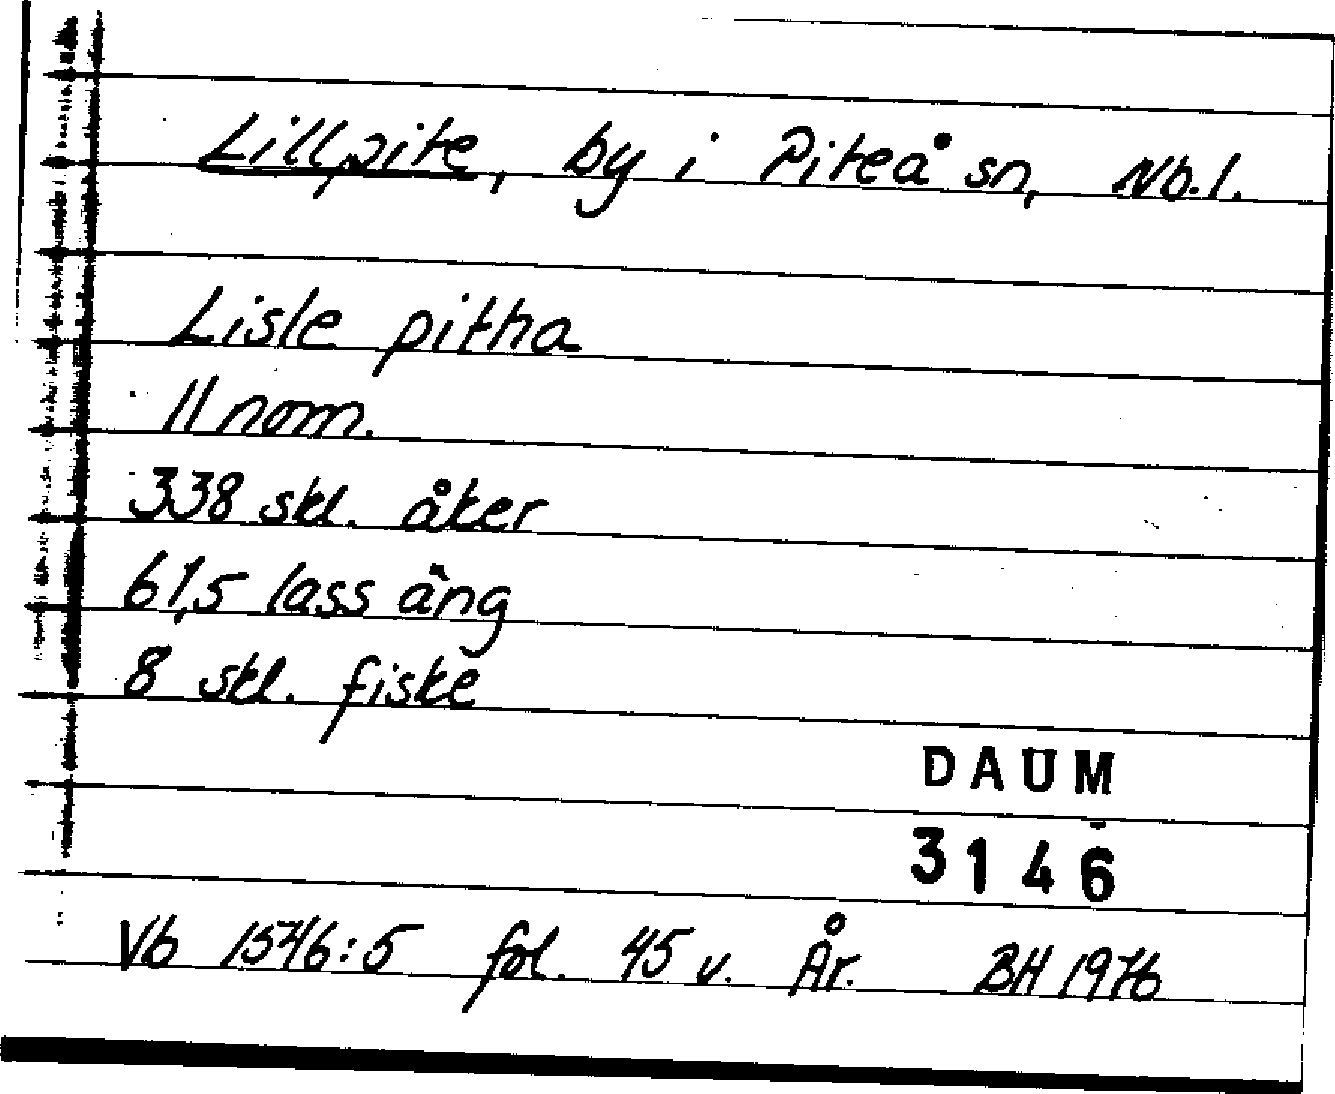 Lillpite, by i Piteå sn, Nb.l.
Lisle pitha
11 nom.
338 skl. åker
61,5 lass äng
8 skl. fiske
DAUM
3146
Vb 1546:5 fol. 45 v. År. BH 1976